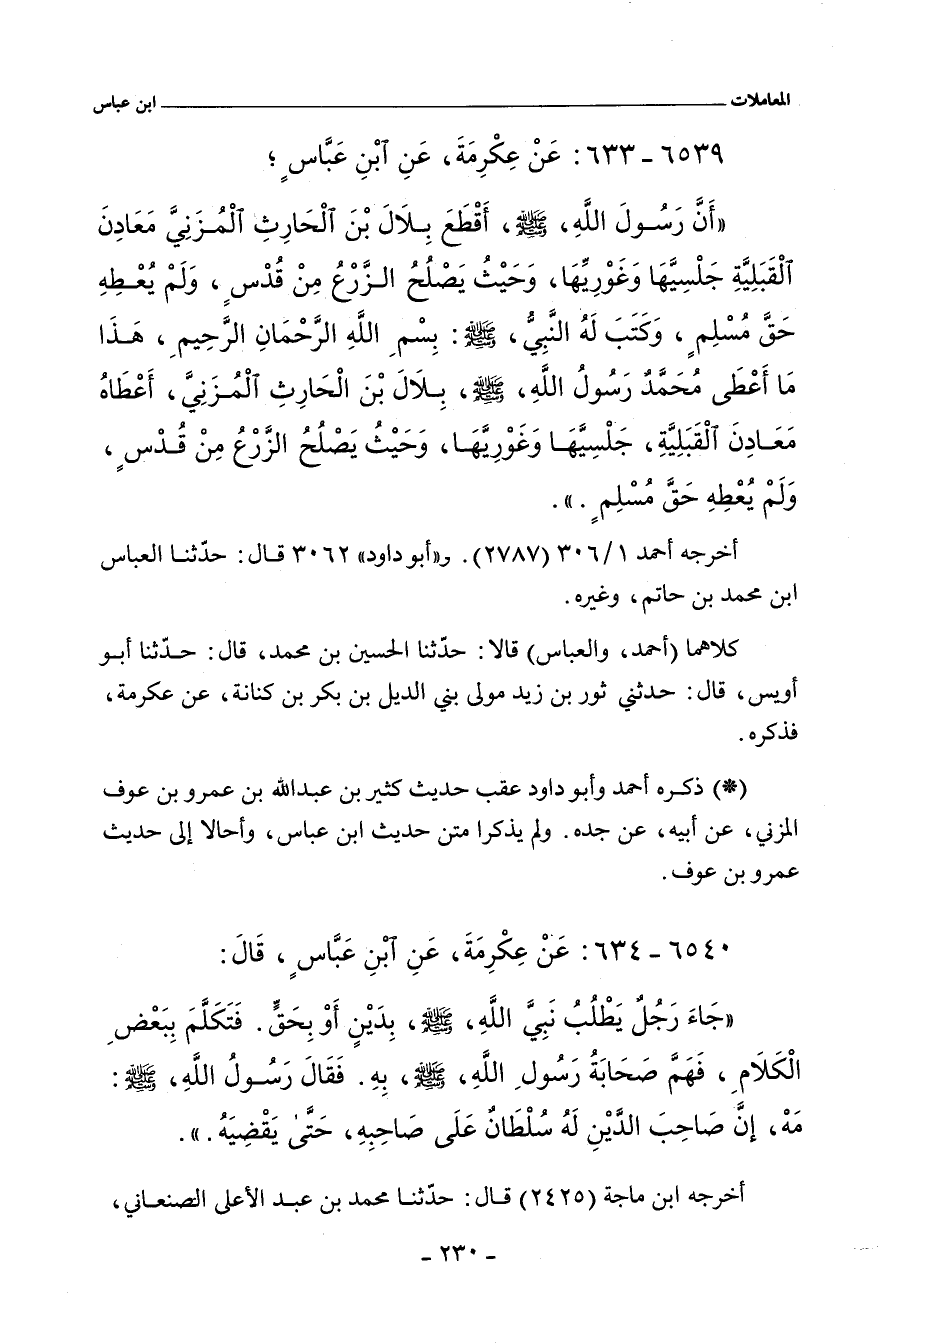 المعاملات ــــــــــــــــــــــــ ابن عباس
٦٥٣٩ - ٦٣٣: عَنْ عِكْرِمَةَ، عَنِ ٱبْنِ عَبَّاسٍ؛
«أَنَّ رَسُولَ اللَّهِ، ﷺ، أَقْطَعَ بِلَالَ بْنَ ٱلْحَارِثِ ٱلْمُزَنِيَّ مَعَادِنَ
ٱلْقَبَلِيَّةِ جَلْسِيَّهَا وَغَوْرِيَّهَا، وَحَيْثُ يَصْلُحُ الزَّرْعُ مِنْ قُدْسٍ، وَلَمْ يُعْطِهِ
حَقَّ مُسْلِمٍ، وَكَتَبَ لَهُ النَّبِيُّ، ﷺ: بِسْمِ اللَّهِ الرَّحْمَانِ الرَّحِيمِ، هَذَا
مَا أَعْطَى مُحَمَّدٌ رَسُولُ اللَّهِ، ﷺ، بِلَالَ بْنَ الْحَارِثِ ٱلْمُزَنِيَّ، أَعْطَاهُ
مَعَادِنَ ٱلْقَبَلِيَّةِ، جَلْسِيَّهَا وَغَوْرِيَّهَا، وَحَيْثُ يَصْلُحُ الزَّرْعُ مِنْ قُدْسٍ،
وَلَمْ يُعْطِهِ حَقَّ مُسْلِمٍ.».
أخرجه أحمد ٣٠٦/١ (٢٧٨٧). و«أبو داود» ٣٠٦٢ قال: حدّثنا العباس
ابن محمد بن حاتم، وغيره.
كلاهما (أحمد، والعباس) قالا: حدّثنا الحسين بن محمد، قال: حدّثنا أبو
أويس، قال: حدثني ثور بن زيد مولى بني الديل بن بكر بن كنانة، عن عكرمة،
فذكره.
(*) ذكره أحمد وأبو داود عقب حديث كثير بن عبدالله بن عمرو بن عوف
المزني، عن أبيه، عن جده. ولم يذكرا متن حديث ابن عباس، وأحالا إلى حديث
عمرو بن عوف.
٦٥٤٠ - ٦٣٤: عَنْ عِكْرِمَةَ، عَنِ ٱبْنِ عَبَّاسٍ، قَالَ:
«جَاءَ رَجُلٌ يَطْلُبُ نَبِيَّ اللَّهِ، ﷺ، بِدَيْنٍ أَوْ بِحَقٍّ. فَتَكَلَّمَ بِبَعْضِ
الْكَلَامِ، فَهَمَّ صَحَابَةُ رَسُولِ اللَّهِ، ﷺ، بِهِ. فَقَالَ رَسُولُ اللَّهِ، ﷺ:
مَهْ، إِنَّ صَاحِبَ الدَّيْنِ لَهُ سُلْطَانٌ عَلَى صَاحِبِهِ، حَتَّى يَقْضِيَهُ.».
أخرجه ابن ماجة (٢٤٢٥) قال: حدّثنا محمد بن عبد الأعلى الصنعاني،
- ٢٣٠ -